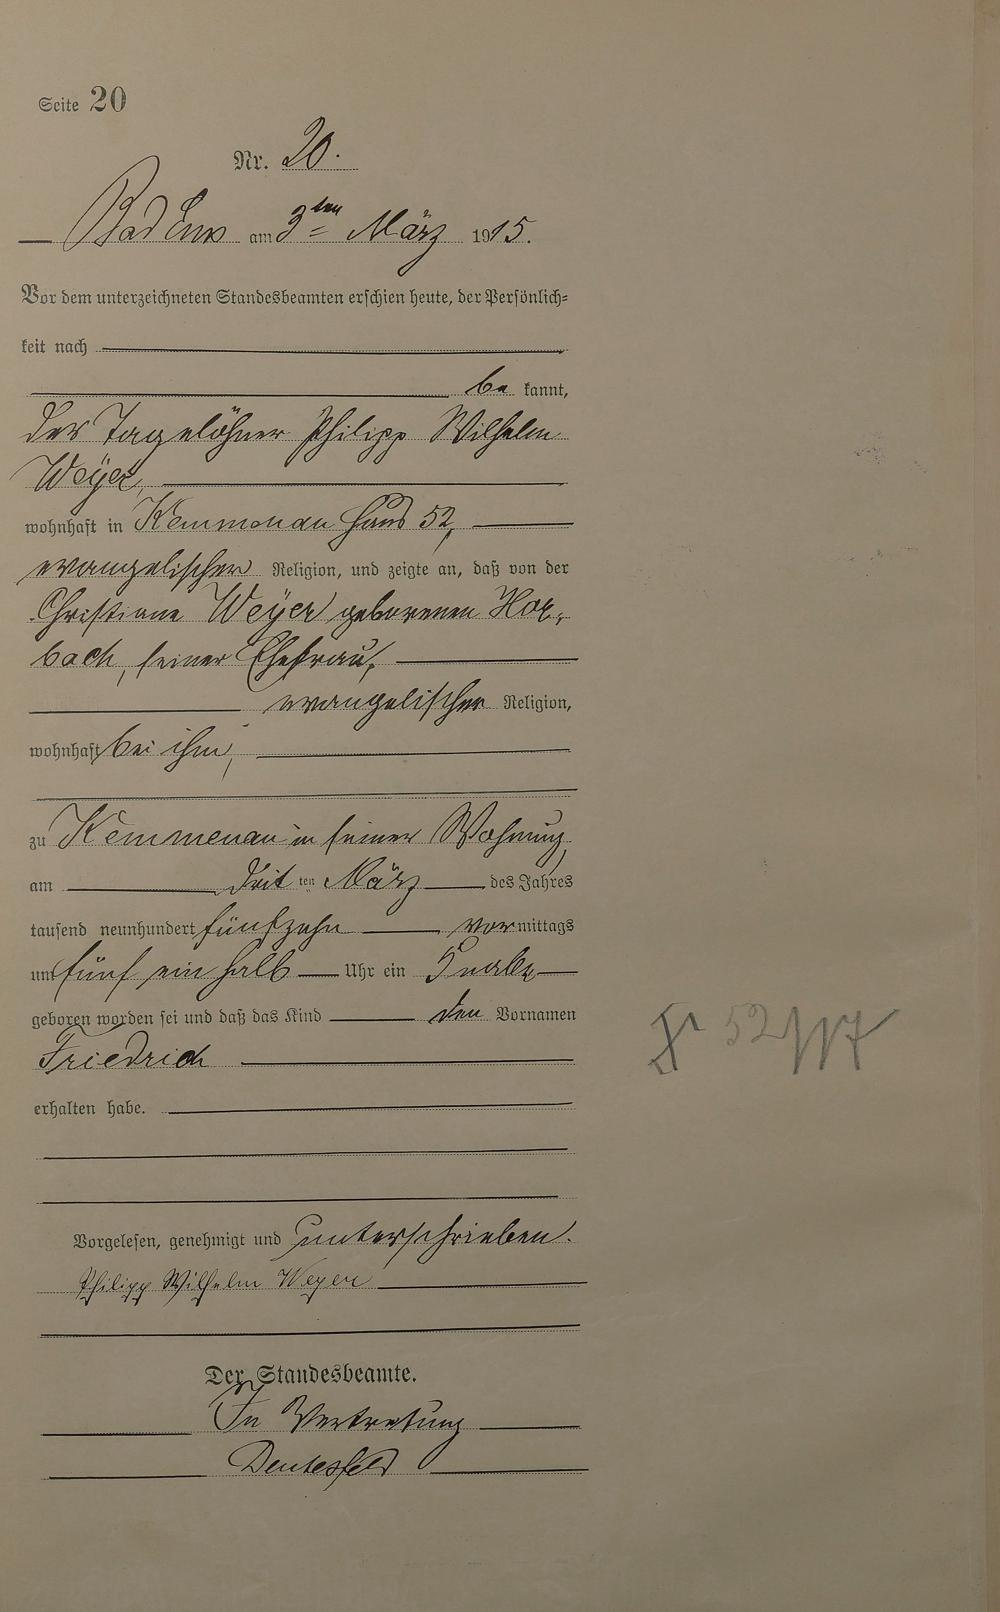 Seite 20
Nr. 20.
Bad Ems am 3ten März 1915.
Vor dem unterzeichneten Standesbeamten erschien heute, der Persönlich-
keit nach
be kannt,
der Tagelöhner Philipp Wilhelm
Weyer,
wohnhaft in Kemmenau Haus 52,
evangelischer Religion, und zeigte an, daß von der
Christiane Weyer geborenen Hor-
bach, seiner Ehefrau,
evangelischer Religion,
wohnhaft bei ihm,
zu Kemmenau in seiner Wohnung,
am dritten März des Jahres
tausend neunhundert fünfzehn vormittags
um fünf ein halb Uhr ein Knabe
geboren worden sei und daß das Kind den Vornamen
Friedrich
erhalten habe.
52/17
Vorgelesen, genehmigt und unterschrieben.
Philipp Wilhelm Weyer
Der Standesbeamte.
In Vertretung